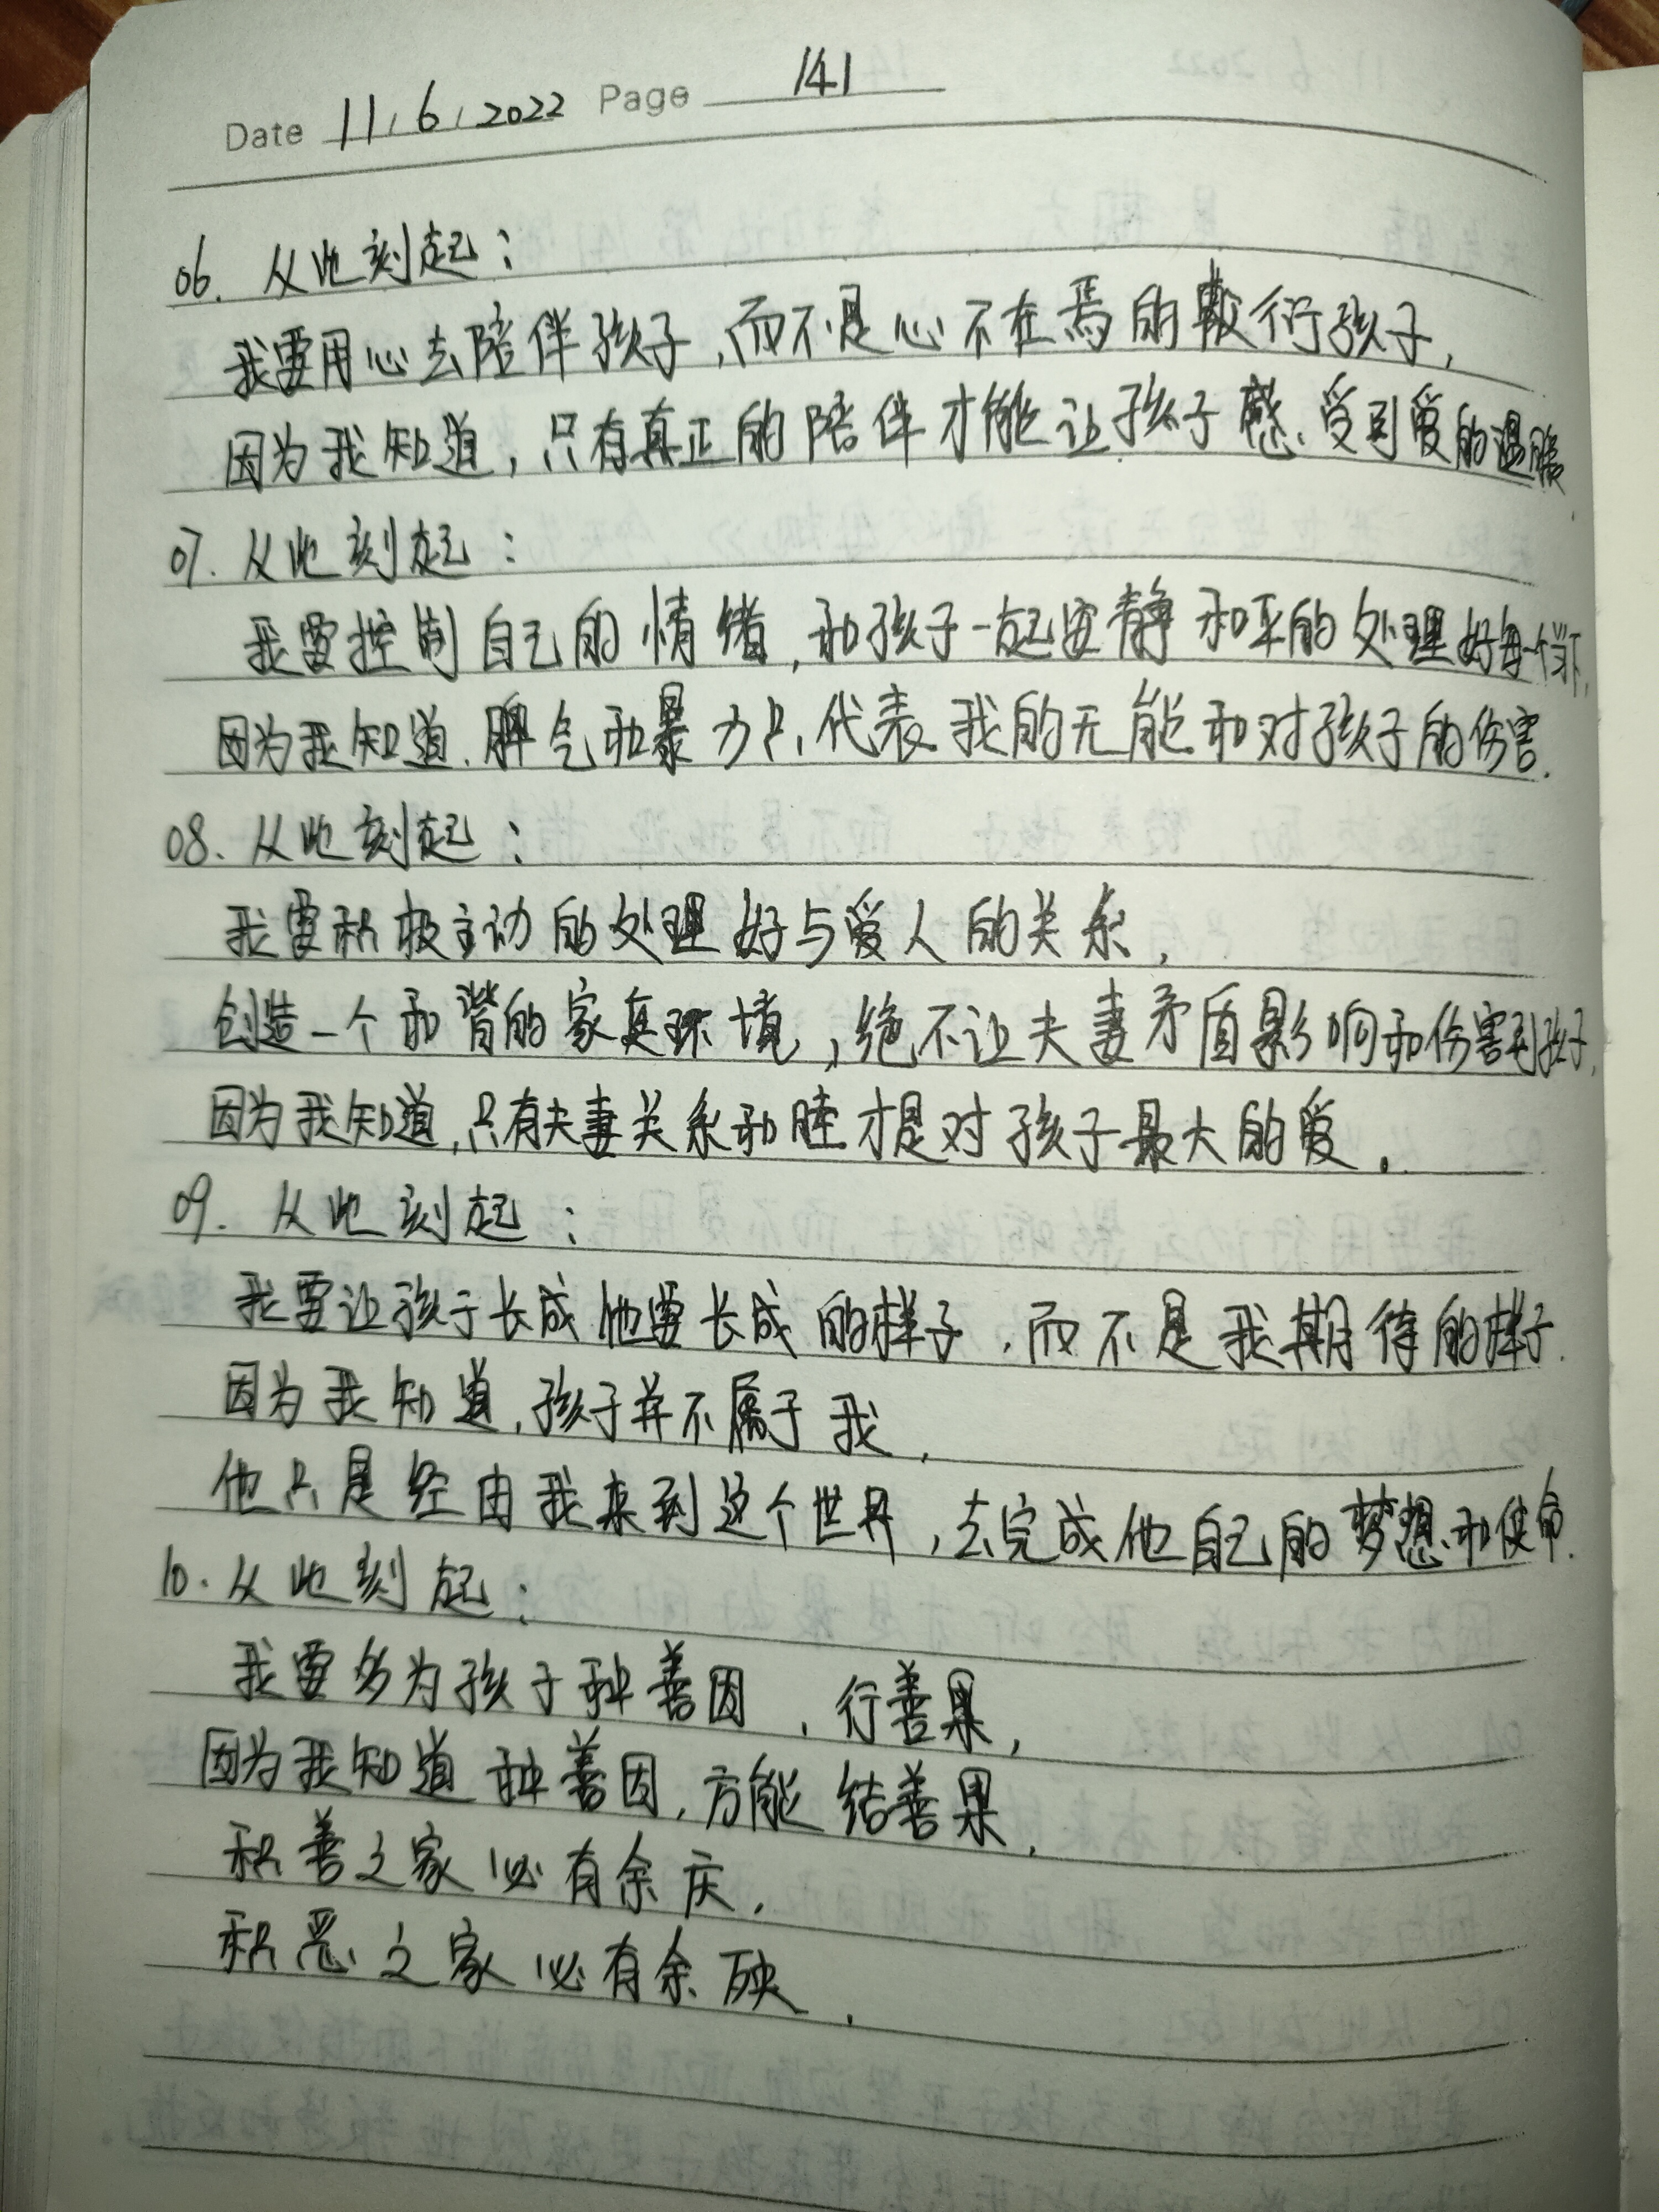 Date 11/6/2022 Page 141
06. 从此刻起：
我要用心去陪伴孩子，而不是心不在焉的敷衍孩子，
因为我知道，只有真正的陪伴才能让孩子感受到爱的温暖
07. 从此刻起：
我要控制自己的情绪，和孩子一起安静和平的处理好每一个当下，
因为我知道，脾气和暴力只代表我的无能和对孩子的伤害.
08. 从此刻起：
我要积极主动的处理好与爱人的关系，
创造一个和谐的家庭环境，绝不让夫妻矛盾影响和伤害到孩子，
因为我知道，只有夫妻关系和睦才是对孩子最大的爱。
09. 从此刻起：
我要让孩子长成他要长成的样子，而不是我期待的样子.
因为我知道，孩子并不属于我，
他只是经由我来到这个世界，去完成他自己的梦想和使命.
10. 从此刻起：
我要多为孩子种善因，行善果，
因为我知道种善因，方能结善果，
积善之家必有余庆，
积恶之家必有余殃.